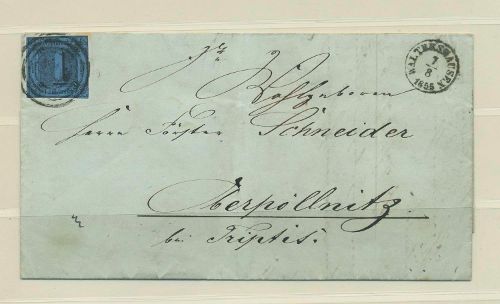 1
WALTERSHAUSEN
7
8
1855
Sr
Wohlgeboren
Herrn Förster Schneider
Oberpöllnitz
bei Triptis.